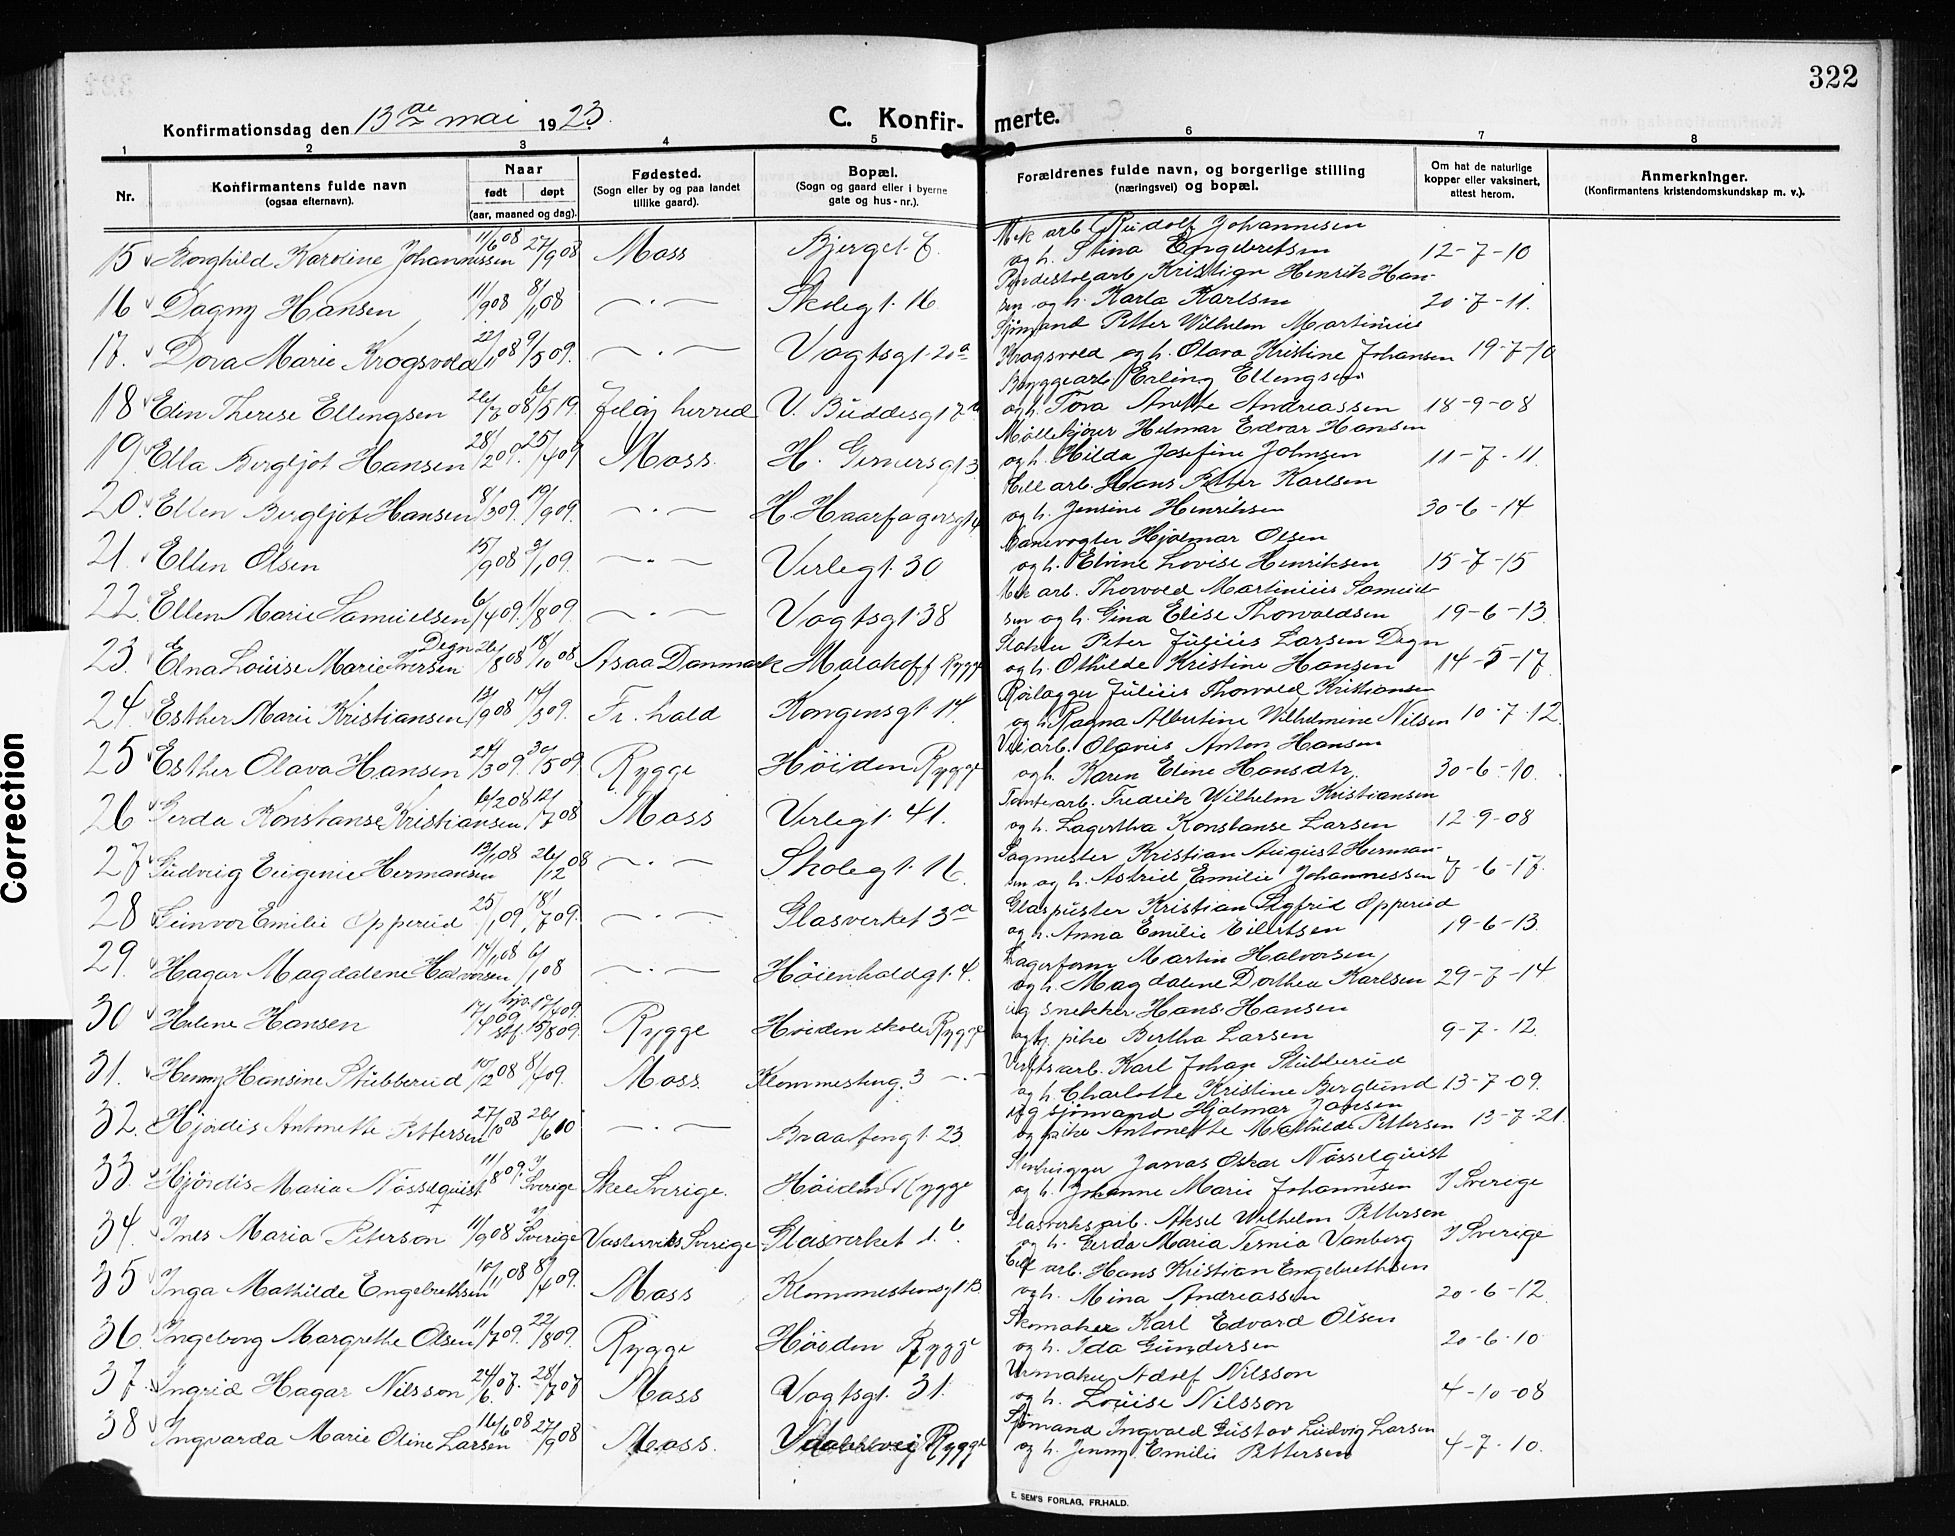 322
Konfirmationsdag den 13de mai 1923.
C. Konfirmerte.
1 2 3 4 5 6 7 8
Nr.
Konfirmantens fulde navn
(ogsaa efternavn).
Naar
født døpt
(aar, maaned og dag).
Fødested.
(Sogn eller by og paa landet
tillike gaard).
Bopæl.
(Sogn og gaard eller i byerne
gate og hus-nr.).
Forældrenes fulde navn, og borgerlige stilling
(næringsvei) og bopæl.
Om hat de naturlige
kopper eller vaksinert,
attest herom.
Anmerkninger.
(Konfirmantens kristendomskundskap m. v.).
15 Borghild Karoline Johannessen 11/6 08 27/9 08 Moss Bjerget 7. Mek arb Rudolf Johannesen
og h. Stina Engebretsen 12-7-10
16 Dagny Hansen 11/9 08 8/1 08 — . — Skolegt. 16 Kristian Henrik Han-
sen og h. Karla Karlsen 20-7-11.
17. Dora Marie Krogsvold 22/11 08 9/5 09. — . — Vogtsgt. 20a Sjømand Petter Wilhelm Martinius
Krogsvold og h. Olava Kristine Johansen 19-7-10
18 Elin Therese Ellengsen 26/7 08 6/5 19. Jeløy herred V. Buddesgt 7b Bryggearb Erling Ellengsen
og h. Tora Anette Andreassen 18-9-08
19. Ella Bergljot Hansen 28/2 09. 25/4 09 Moss. H. Gernersgt 3 Møllekjører Helmar Edvar Hansen
og h. Hilda Josefine Johnsen 11-7-11.
20. Ellen Bergljot Hansen 8/3 09. 19/9 09. — . — H. Haarfagersgt 4 Cell arb. Hans Petter Karlsen
og h. Jensine Henriksen 30-6-14
21. Ellen Olsen 15/9 08 3/1 09. — . — Verlegt. 30 Banevogter Hjalmar Olsen
og h. Elvine Lovise Henriksen 15-7-15
22. Ellen Marie Samuelsen 6/4 09. 1/8 09. — . — Vogtsgt. 38 Mek arb. Thorvold Martinius Samuel-
sen og h. Gina Elise Thorvaldsen 19-6-13.
23. Elna Louise Marie Degn Iversen 26/8 08 18/10 08 Asaa Danmark Malakoff Rygge Peter Julius Larsen Degn
og h. Othilde Kristine Hansen 14-5-17.
24. Esther Marie Kristiansen 13/9 08 14/3 09. Fr. hald Kongensgt. 14. Rørlægger Julius Thorvald Kristiansen
og h. Ragna Albertine Wilhelmine Nilsen 10-7-12.
25 Esther Olava Hansen 24/3 09. 30/5 09 Rygge Høiden Rygge Veiarb. Olavus Anton Hansen
og h. Karen Eline Hansdtr. 30-6-10.
26 Gerda Konstanse Kristiansen 6/2 08 12/7 08 Moss Verlegt. 41. Tomtearb. Fredrik Wilhelm Kristiansen
og h. Lagertha Konstanse Larsen 12-9-08
27 Gudveig Eugenie Hermansen 13/1 08 26/12 08 — . — Skolegt. 16. Sagmester Kristian August Herman-
sen og h. Astrid Emilie Johannessen 7-6-17.
28 Gunvor Emilie Opperud 25/1 09. 18/7 09. — . — Glasverket 3a Glaspuster Kristian Sigfrid Opperud
og h. Anna Emilie Eilertsen 19-6-13.
29. Hagar Magdalene Halvorsen 14/1 08 6/1 08 — . — Høienhaldgt. 4. Lagerform Martin Halvorsen,
og h. Magdalene Dorthea Karlsen 29-7-14
30 Helene Hansen 17/4 09 hjd. 17/4 09. stf. 15/8 09. Rygge Høiden skole Rygge ug snekker Hans Hansen
og pike Bertha Larsen 9-7-12.
31. Henny Hansine Stubberud 10/12 08 8/4 09. Moss. Klommesteng. 3 — . — Verftsarb. Karl Johan Stubberud
og h. Charlotte Kristine Berglund 13-7-09.
32. Hjørdis Antonette Pettersen 27/10 08 26/6 10 — . — Braatengt. 23. ug sjømand Hjalmar Jansen
og pike Antonette Mathilde Pettersen 13-7-21.
33. Hjørdis Maria Nösselquist 11/8 09. I Sverige Skee Sverige. Høiden Rygge Stenhugger Jonas Oskar Nösselquist
og h. Johanne Marie Johannesen I Sverige
34. Ines Maria Peterson 11/9 08 I Sverige Vasterviks Sverige Glasverket 1.b. Glasverksarb. Aksel Wilhelm Pettersen
og h. Gerda Maria Ternia Vanberg I Sverige
35 Inga Mathilde Engebrethsen 10/11 08 8/4 09. Moss Klommestensgt 13. Cell arb. Hans Kristian Engebrethsen
og h. Mina Andreassen 20-6-12.
36. Ingeborg Margrethe Olsen 11/7 09. 22/8 09. Rygge Høiden Rygge Skomaker Karl Edvard Olsen
og h. Ida Gundersen 20-6-10
37. Ingrid Hagar Nilsson 24/6 07. 28/7 07 Moss Vogtsgt. 31. Urmaker Adolf Nilsson
og h. Louise Nilsson 4-10-08
38 Ingvarda Marie Oline Larsen 16/6 08 27/9 08 Moss. Rygge Sjømand Ingvald Gustav Ludvig Larsen
og h. Jenny Emilie Pettersen 4-7-10.
E. SEM'S FORLAG, FR.HALD.
Correction